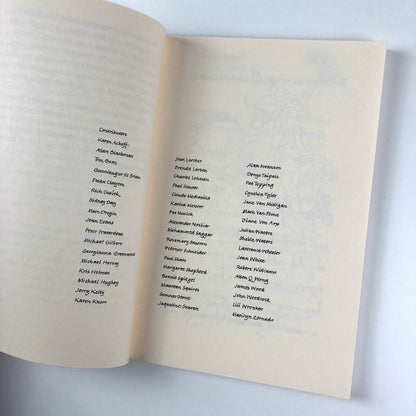 Contributors
Karen Ackoff
Alan Blackman
Tim Botts
Gunnlaugur SE Briem
Ewan Clayton
Rick Cusick
Sidney Day
Marc Drogin
Joan Evans
Peter Fraterdeus
Michael Gilbert
Georgianna Greenwood
Michael Harvey
Kris Holmes
Michael Hughey
Jerry Kelly
Karen Knorr
Jean Larcher
Brenda Larsen
Charles Lehman
Paul Maurer
Claude Mediavilla
Karina Meister
Pat Musick
Alexander Nesbitt
Mohammed Saggar
Rosemary Sassoon
Werner Schneider
Paul Shaw
Margaret Shepherd
Dennis Spiegel
Maureen Squires
Gunnar
Jaqueline Svaren
Alan Swenson
Denys Taipale
Pea Topping
Cynthia Tyler
Jane Van Milligan
Mark Van Stone
Diane Von Arx
Julian Waters
Sheila Waters
Lawrence Wheeler
Jean White
Robert Williams
Allan Q Wong
James Ward
John Woodcock
Lili Wronker
Marilyn Zornado